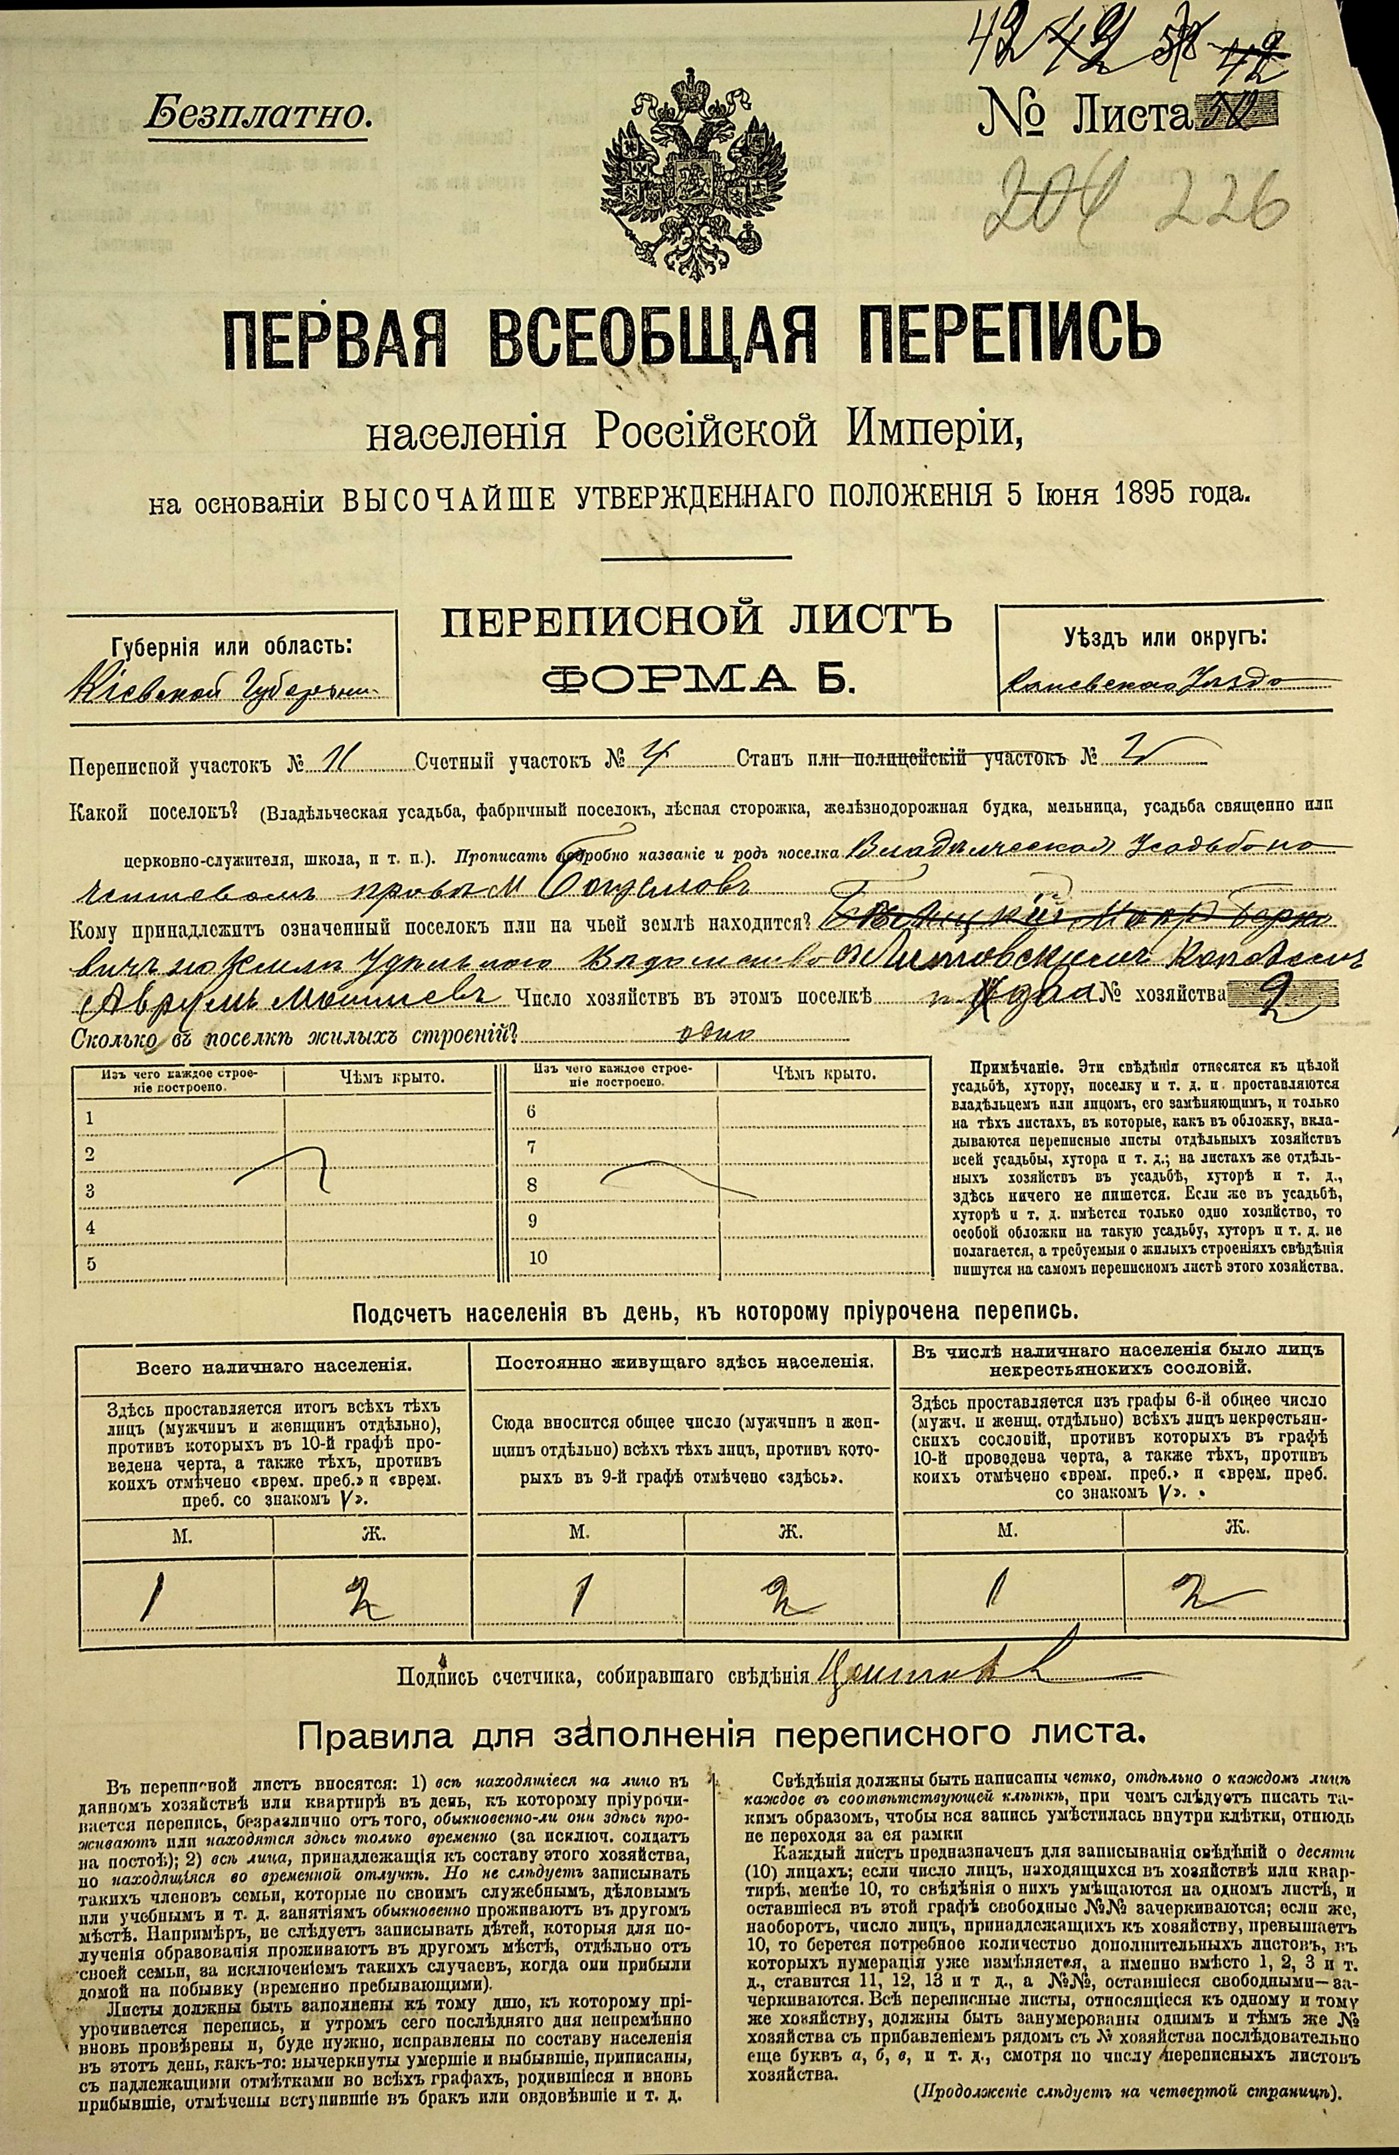 42 42 42
Безплатно.
№ Листа
204 226
ПЕРВАЯ ВСЕОБЩАЯ ПЕРЕПИСЬ
населенія Россійской Имперіи,
на основаніи ВЫСОЧАЙШЕ УТВЕРЖДЕННАГО ПОЛОЖЕНІЯ 5 Іюня 1895 года.
ПЕРЕПИСНОЙ ЛИСТЪ
ФОРМА Б.
Губернія или область:
Кіевской Губерніи
Уѣздъ или округъ:
Каневскаго Уѣзда
Переписной участокъ № 11 Счетный участокъ № 4 Станъ или полицейскій участокъ № 2
Какой поселокъ? (Владѣльческая усадьба, фабричный поселокъ, лѣсная сторожка, желѣзнодорожная будка, мельница, усадьба священно или
церковно-служителя, школа, и т. п.). Прописать подробно названіе и родъ поселка Владѣльческая Усадьба на
чиншевомъ правѣ м
Кому принадлежитъ означенный поселокъ или на чьей землѣ находится?
вичъ на землѣ Удѣльнаго Вѣдомства
Аврумъ Мошиевъ Число хозяйствъ въ этомъ поселкѣ два № хозяйства 2
Сколько въ поселкѣ жилыхъ строеній? одно
Изъ чего каждое строеніе построено. Чѣмъ крыто. Изъ чего каждое строеніе построено. Чѣмъ крыто.
1 6
2 7
3 8
4 9
5 10
Примѣчаніе. Эти свѣдѣнія относятся къ цѣлой
усадьбѣ, хутору, поселку и т. д. и проставляются
владѣльцемъ или лицомъ, его замѣняющимъ, и только
на тѣхъ листахъ, въ которые, какъ въ обложку, вкла-
дываются переписные листы отдѣльныхъ хозяйствъ
всей усадьбы, хутора и т. д.; на листахъ же отдѣль-
ныхъ хозяйствъ въ усадьбѣ, хуторѣ и т. д.,
здѣсь ничего не пишется. Если же въ усадьбѣ,
хуторѣ и т. д. имѣется только одно хозяйство, то
особой обложки на такую усадьбу, хуторъ и т. д. не
полагается, а требуемыя о жилыхъ строеніяхъ свѣдѣнія
пишутся на самомъ переписномъ листѣ этого хозяйства.
Подсчетъ населенія въ день, къ которому пріурочена перепись.
Всего наличнаго населенія.
Здѣсь проставляется итогъ всѣхъ тѣхъ
лицъ (мужчинъ и женщинъ отдѣльно),
противъ которыхъ въ 10-й графѣ про-
ведена черта, а также тѣхъ, противъ
коихъ отмѣчено «врем. преб.» и «врем.
преб. со знакомъ V».
М. Ж.
1 2
Постоянно живущаго здѣсь населенія.
Сюда вносится общее число (мужчинъ и жен-
щинъ отдѣльно) всѣхъ тѣхъ лицъ, противъ кото-
рыхъ въ 9-й графѣ отмѣчено «здѣсь».
М. Ж.
1 2
Въ числѣ наличнаго населенія было лицъ
некрестьянскихъ сословій.
Здѣсь проставляется изъ графы 6-й общее число
(мужч. и женщ. отдѣльно) всѣхъ лицъ некрестьян-
скихъ сословій, противъ которыхъ въ графѣ
10-й проведена черта, а также тѣхъ, противъ
коихъ отмѣчено «врем. преб.» и «врем. преб.
со знакомъ V».
М. Ж.
1 2
Подпись счетчика, собиравшаго свѣдѣнія
Правила для заполненія переписного листа.
Въ переписной листъ вносятся: 1) всѣ находящіеся на лицо въ
данномъ хозяйствѣ или квартирѣ въ день, къ которому пріурочи-
вается перепись, безразлично отъ того, обыкновенно-ли они здѣсь про-
живаютъ или находятся здѣсь только временно (за исключ. солдатъ
на постоѣ); 2) всѣ лица, принадлежащія къ составу этого хозяйства,
но находящіяся во временной отлучкѣ. Но не слѣдуетъ записывать
такихъ членовъ семьи, которые по своимъ служебнымъ, дѣловымъ
или учебнымъ и т. д. занятіямъ обыкновенно проживаютъ въ другомъ
мѣстѣ. Напримѣръ, не слѣдуетъ записывать дѣтей, которыя для по-
лученія образованія проживаютъ въ другомъ мѣстѣ, отдѣльно отъ
своей семьи, за исключеніемъ такихъ случаевъ, когда они прибыли
домой на побывку (временно пребывающими).
Листы должны быть заполнены къ тому дню, къ которому прі-
урочивается перепись, и утромъ сего послѣдняго дня непремѣнно
вновь провѣрены и, буде нужно, исправлены по составу населенія
въ этотъ день, какъ-то: вычеркнуты умершіе и выбывшіе, приписаны,
съ надлежащими отмѣтками во всѣхъ графахъ, родившіеся и вновь
прибывшіе, отмѣчены вступившіе въ бракъ или овдовѣвшіе и т. д.
Свѣдѣнія должны быть написаны четко, отдѣльно о каждомъ лицѣ
каждое въ соотвѣтствующей клѣткѣ, при чемъ слѣдуетъ писать та-
кимъ образомъ, чтобы вся запись умѣстилась внутри клѣтки, отнюдь
не переходя за ея рамки
Каждый листъ предназначенъ для записыванія свѣдѣній о десяти
(10) лицахъ; если число лицъ, находящихся въ хозяйствѣ или квар-
тирѣ, менѣе 10, то свѣдѣнія о нихъ умѣщаются на одномъ листѣ, и
оставшіеся въ этой графѣ свободные №№ зачеркиваются; если же,
наоборотъ, число лицъ, принадлежащихъ къ хозяйству, превышаетъ
10, то берется потребное количество дополнительныхъ листовъ, въ
которыхъ нумерація уже измѣняется, а именно вмѣсто 1, 2, 3 и т.
д., ставится 11, 12, 13 и т д., а №№, оставшіеся свободными—за-
черкиваются. Всѣ переписные листы, относящіеся къ одному и тому
же хозяйству, должны быть занумерованы однимъ и тѣмъ же №
хозяйства съ прибавленіемъ рядомъ съ № хозяйства послѣдовательно
еще буквъ а, б, в, и т. д., смотря по числу переписныхъ листовъ
хозяйства.
(Продолженіе слѣдуетъ на четвертой страницѣ).